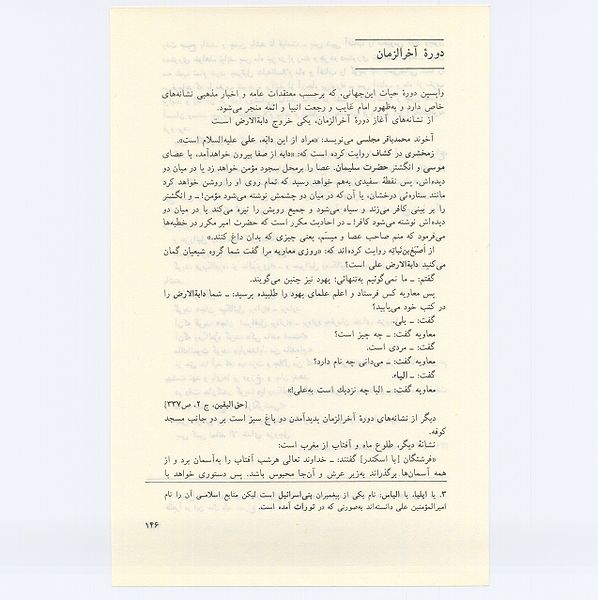 دورهٔ آخرالزمان
واپسین دورهٔ حیات این‌جهانی، که برحسب معتقدات عامه و اخبار مذهبی نشانه‌های
خاص دارد و به‌ظهور امام غایب و رجعت انبیا و ائمه منجر می‌شود.
از نشانه‌های آغاز دورهٔ آخرالزمان، یکی خروج دابةالارض است
آخوند محمدباقر مجلسی می‌نویسد: «مراد از این دابّه، علی علیه‌السلام است».
زمخشری در کشاف روایت کرده است که: «دابه از صفا بیرون خواهدآمد، با عصای
موسی و انگشتر حضرت سلیمان. عصا را برمحل سجود مؤمن خواهد زد یا در میان دو
دیده‌اش، پس نقطهٔ سفیدی به‌هم خواهد رسید که تمام روی او را روشن خواهد کرد
مانند ستاره‌ئی درخشان، یا آن که در میان دو چشمش نوشته می‌شود مؤمن! ـ و انگشتر
را بر بینی کافر می‌زند و سیاه می‌شود و جمیع رویش را تیره می‌کند یا در میان دو
دیده‌اش نوشته می‌شود کافر! ـ در احادیث مکرر است که حضرت امیر مکرر در خطبه‌ها
می‌فرمود که منم صاحب عصا و میسَم، یعنی چیزی که بدان داغ کنند.»
از اَصْبَغ‌بن‌نباته روایت کرده‌اند که: «روزی معاویه مرا گفت شما گروه شیعیان گمان
می‌کنید دابةالارض علی است؟
گفتم: ـ ما نمی‌گوئیم به‌تنهائی؛ یهود نیز چنین می‌گویند.
پس معاویه کس فرستاد و اعلم علمای یهود را طلبیده پرسید: ـ شما دابةالارض را
در کتب خود می‌یابید؟
گفت: ـ بلی.
معاویه گفت: ـ چه چیز است؟
گفت: ـ مردی است.
معاویه گفت: ـ می‌دانی چه نام دارد؟
گفت: ـ الیاء.
معاویه گفت: ـ الیا چه نزدیك است به‌علی!»
[حق‌الیقین، ج ۲، ص۳۳۷]
دیگر از نشانه‌های دورهٔ آخرالزمان پدیدآمدن دو باغ سبز است بر دو جانب مسجد
کوفه.
نشانهٔ دیگر، طلوع ماه و آفتاب از مغرب است:
«فرشتگان [با اسکندر] گفتند: ـ خداوند تعالی هرشب آفتاب را به‌آسمان برد و از
همه آسمان‌ها برگذراند به‌زیر عرش و آن‌جا محبوس باشد. پس دستوری خواهد با
۳. یا ایلیا، یا الیاس: نام یکی از پیغمبران بنی‌اسرائیل است لیکن منابع اسلامی آن را نام
امیرالمؤمنین علی دانسته‌اند به‌صورتی که در تورات آمده است.
۱۴۶